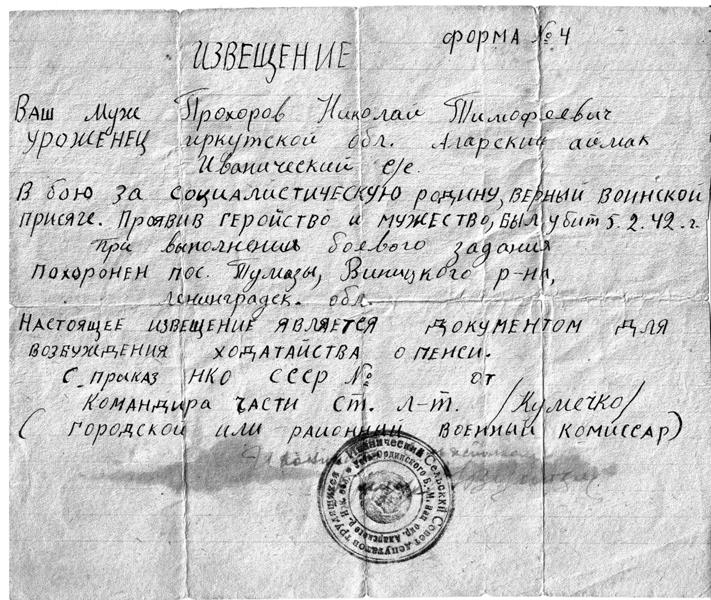 ФОРМА № 4
ИЗВЕЩЕНИЕ
ВАШ Муж Прохоров Николай Тимофеевич
УРОЖЕНЕЦ иркутской обл. Аларский аймак
Иванический с/с.
В БОЮ ЗА СОЦИАЛИСТИЧЕСКУЮ РОДИНУ, ВЕРНЫЙ ВОИНСКОЙ
ПРИСЯГЕ. ПРОЯВИВ ГЕРОЙСТВО и МУЖЕСТВО, БЫЛ убит 5.2.42.г.
при выполнении боевого задания
ПОХОРОНЕН пос. Тумазы, Виницкого р-на,
ленинградск. обл.
НАСТОЯЩЕЕ ИЗВЕЩЕНИЕ ЯВЛЯЕТСЯ ДОКУМЕНТОМ ДЛЯ
ВОЗБУЖДЕНИЯ ХОДАТАЙСТВА О ПЕНСИ.
С приказ НКО СССР № от
КОМАНДИРА ЧАСТИ СТ. Л-Т. /Кумечко/
(ГОРОДСКОЙ ИЛИ РАЙОННИЙ ВОЕННЫЙ КОМИССАР)
Иванический Сельский Совет депутатов трудящихся
Усть-Ординского Б.-М. Нац. окр. Аларского р. И-к. обл.